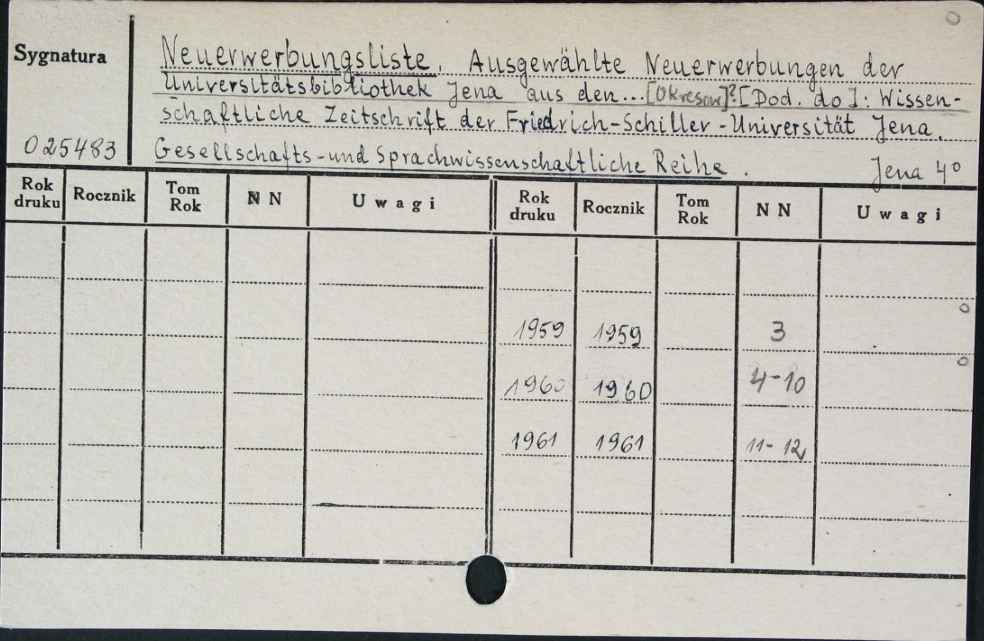 Sygnatura
Neuerwerbungsliste. Ausgewählte Neuerwerbungen der
Universitätsbibliothek Jena aus den... [Okresow]? [Dod. do]: Wissen-
schaftliche Zeitschrift der Friedrich-Schiller-Universität Jena.
025483 Gesellschafts-und Sprachwissenschaftliche Reihe.
Jena 4°
Rok druku Rocznik Tom Rok NN Uwagi Rok druku Rocznik Tom Rok NN Uwagi
1959 1959 3
1960 1960 4-10
1961 1961 11-12